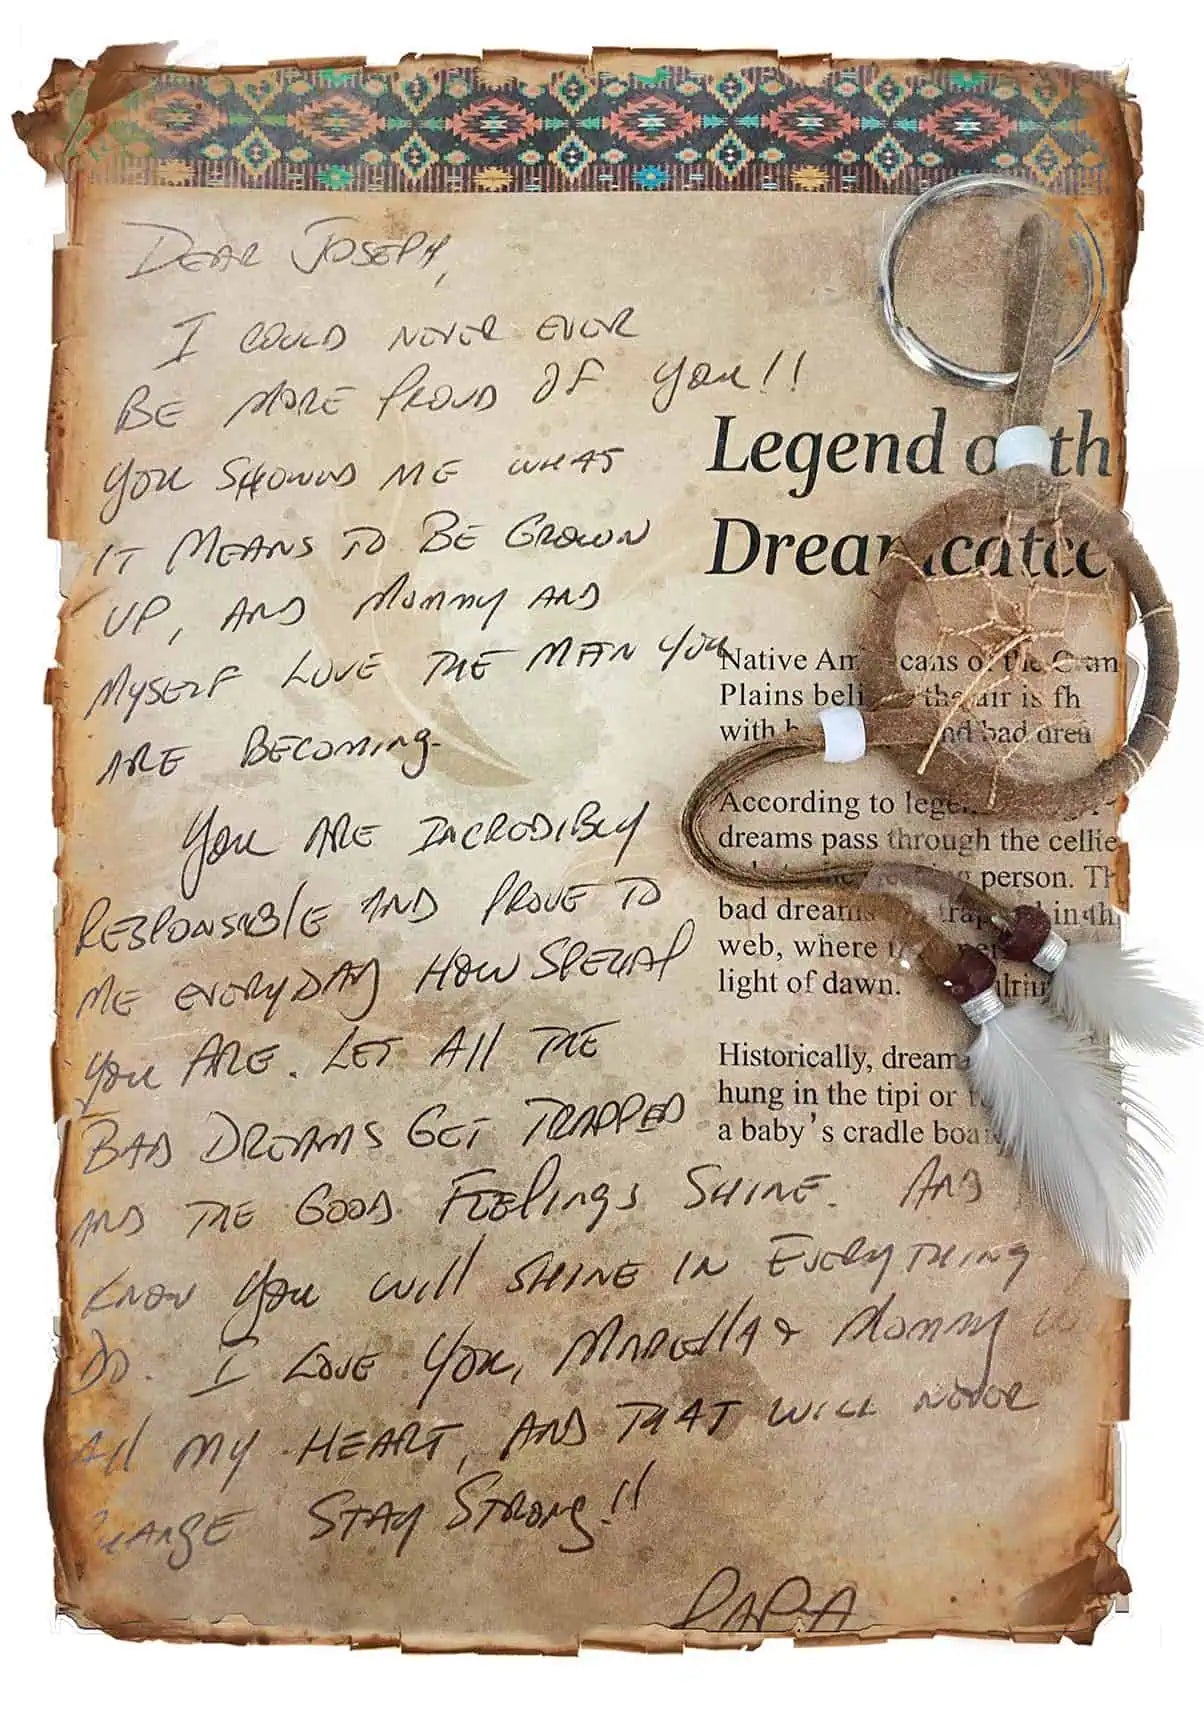 DEAR JOSEPH,
I COULD NEVER EVER
BE MORE PROUD OF YOU!!
YOU SHOWED ME WHAT
IT MEANS TO BE GROWN
UP, AND MOMMY AND
MYSELF LOVE THE MAN YOU
ARE BECOMING.
YOU ARE INCREDIBLY
RESPONSIBLE AND PROVE TO
ME EVERYDAY HOW SPECIAL
YOU ARE. LET All THE
BAD DREAMS GET TRAPPED
AND THE GOOD FEELINGS SHINE. AND
KNOW YOU WILL SHINE IN EVERYTHING
DO. I LOVE YOU, MARELLA & MOMMY
All MY HEART, AND THAT WILL NEVER
CHANGE STAY STRONG!!
PAPA
Legend th
Native of the
Plains the air is fh
with nd bad
According to
dreams pass through the cellie
person.
bad dreams in
web, where
light of dawn.
Historically, dream
hung in the tipi or
a baby's cradle